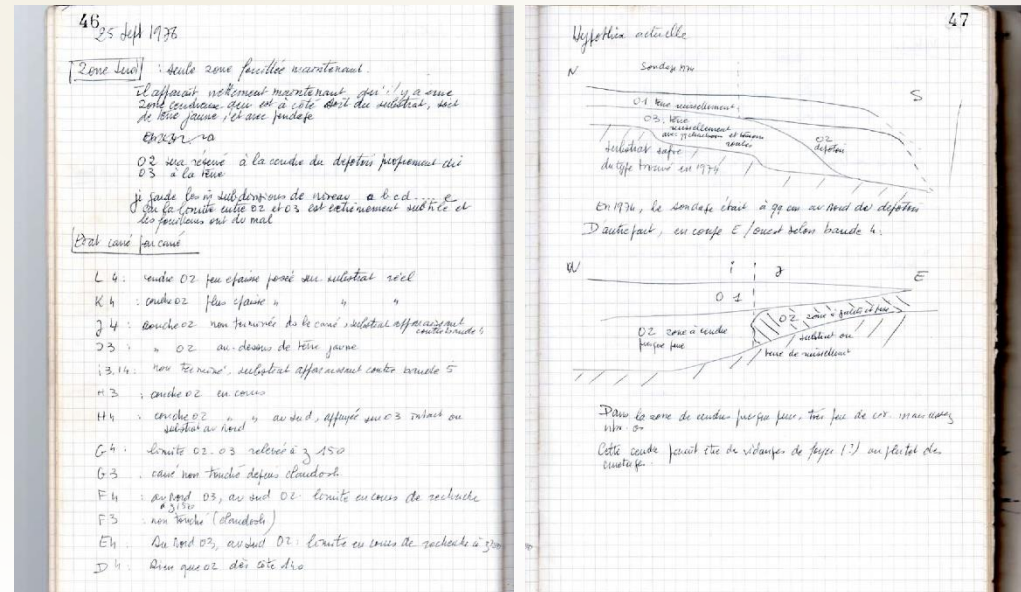 46
25 Sept 1976
Zone Sud : seule zone fouillée maintenant.
il apparait nettement maintenant qu'il y a une
zone cendreuse qui est à côté soit du substrat, soit
de terre jaune, et avec
02 sera réservé à la couche du dépotoir proprement dit
03 à la terre
je garde les subdivisions de niveau a b c d ... e
car la limite entre 02 et 03 est extrêmement subtile et
les fouilleurs ont du mal
Etat carré par carré
L 4 : cendre 02 peu épaisse posée sur substrat réel
K 4 : couche 02 plus épaisse " " "
J 4 : couche 02 non terminée ds le carré, substrat apparaissant
contre bande 5
J3 : " 02 au-dessus de terre jaune
i3, i4 : non terminé, substrat apparaissant contre bande 5
H 3 : couche 02 en cours
H4 : couche 02 " " au sud, appuyée sur 03 intact ou
substrat au nord
G 4 : limite 02-03 relevée à z 150
G 3 : carré non touché depuis
F 4 : au Nord 03, au sud 02 limite en cours de recherche
à z 150
F 3 : non touché
E4 : Au Nord 03, au Sud 02 : limite en cours de recherche à
D 4 : Rien que 02 dès côte 140
47
Hypothèse actuelle
N
Sondage 1974
S
01 terre ruissellement
03 : terre
ruissellement
02
dépotoir
substrat
du type trouvé en 1974
En 1974, le sondage était à qq cm au Nord du dépotoir
D'autre part, en coupe E/ouest selon bande 4 :
W
i
J
E
01
02 zone à cendre
presque pure
02 zone à galets
substrat ou
terre de ruissellement
Dans la zone de cendres presque pure, très peu de cer. mais assez
nbr. os
Cette cendre parait être de vidanges de foyer (?) ou plutot des